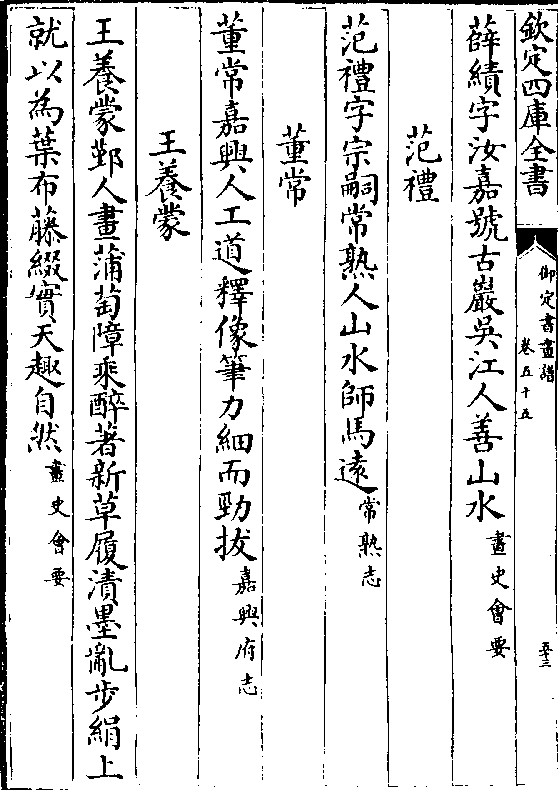 欽定四庫全書
御定書畫譜
卷五十五
五十三
薛績字汝嘉號古巖吳江人善山水畫史會要
范禮
范禮字宗嗣常熟人山水師馬遠常熟志
董常
董常嘉興人工道釋像筆力細而勁拔嘉興府志
王養蒙
王養蒙鄞人畫蒲萄障乘醉著新草履漬墨亂步絹上
就以為葉布藤綴實天趣自然畫史會要